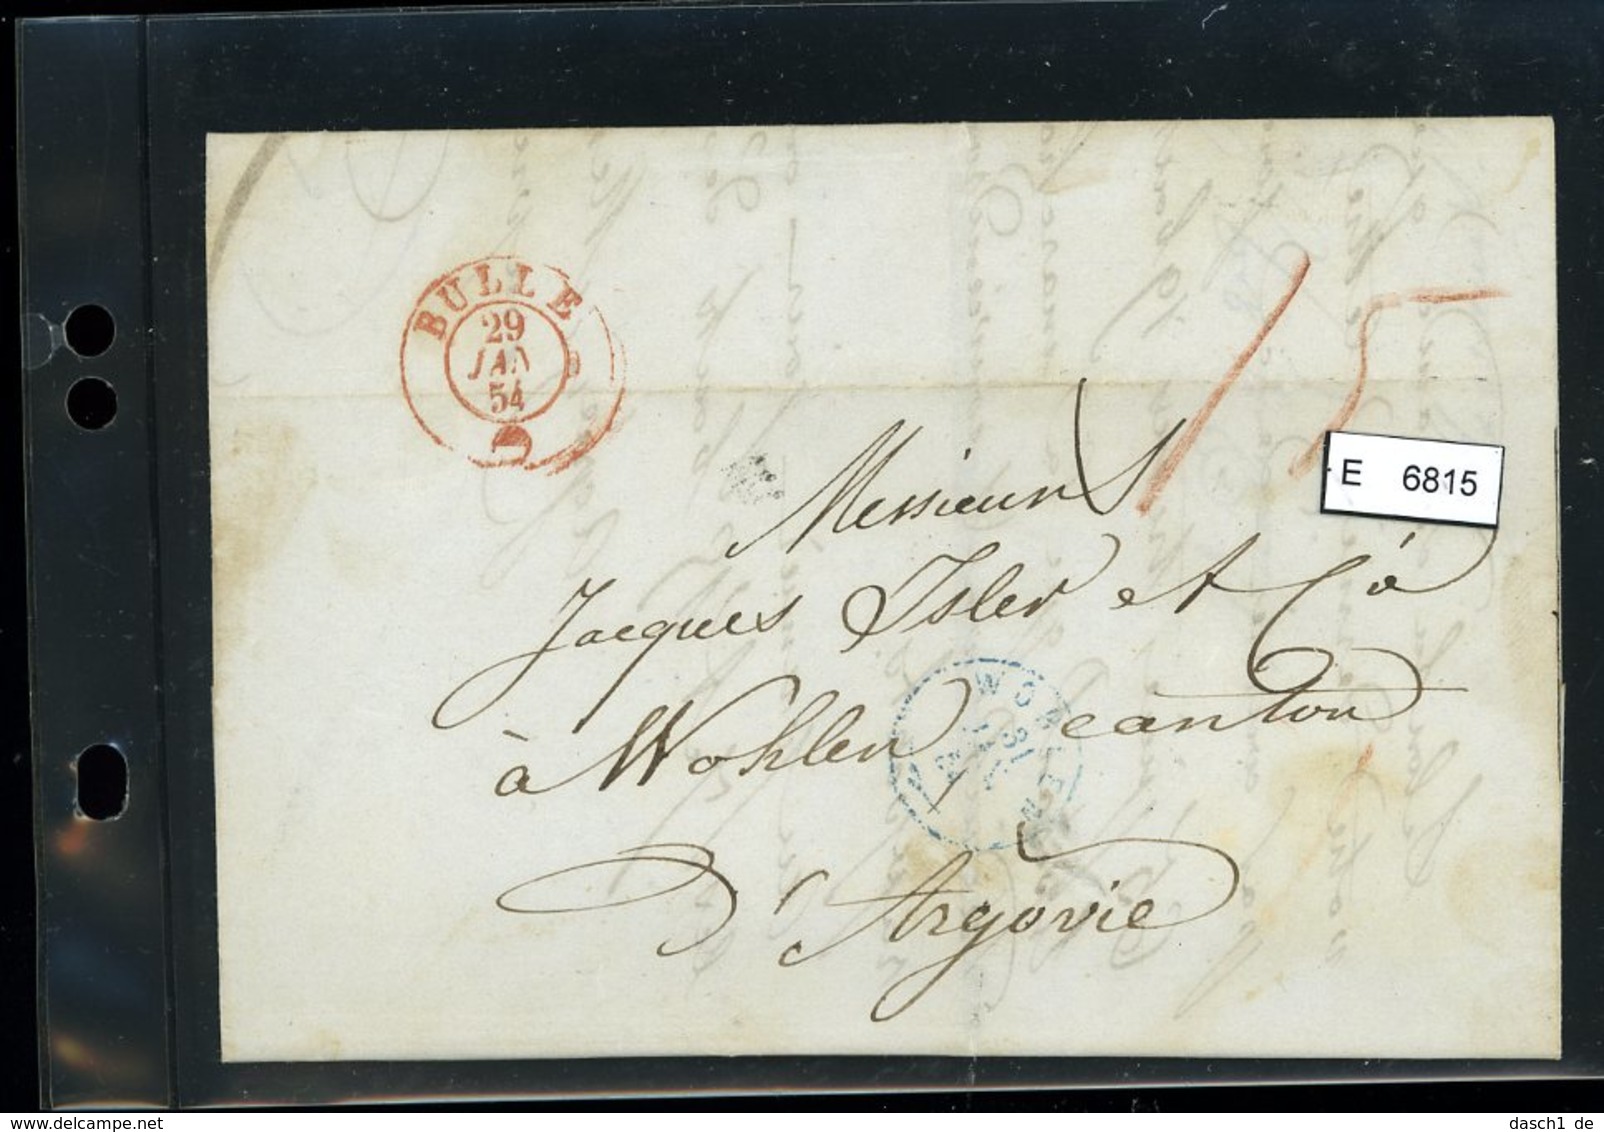 BULLE
29
JAN
54
15
E 6815
Messieurs
Jacques Isler et Cie
à Wohlen canton
WOHLEN
31
d'Argovie
www.delcampe.net
dasch1 de